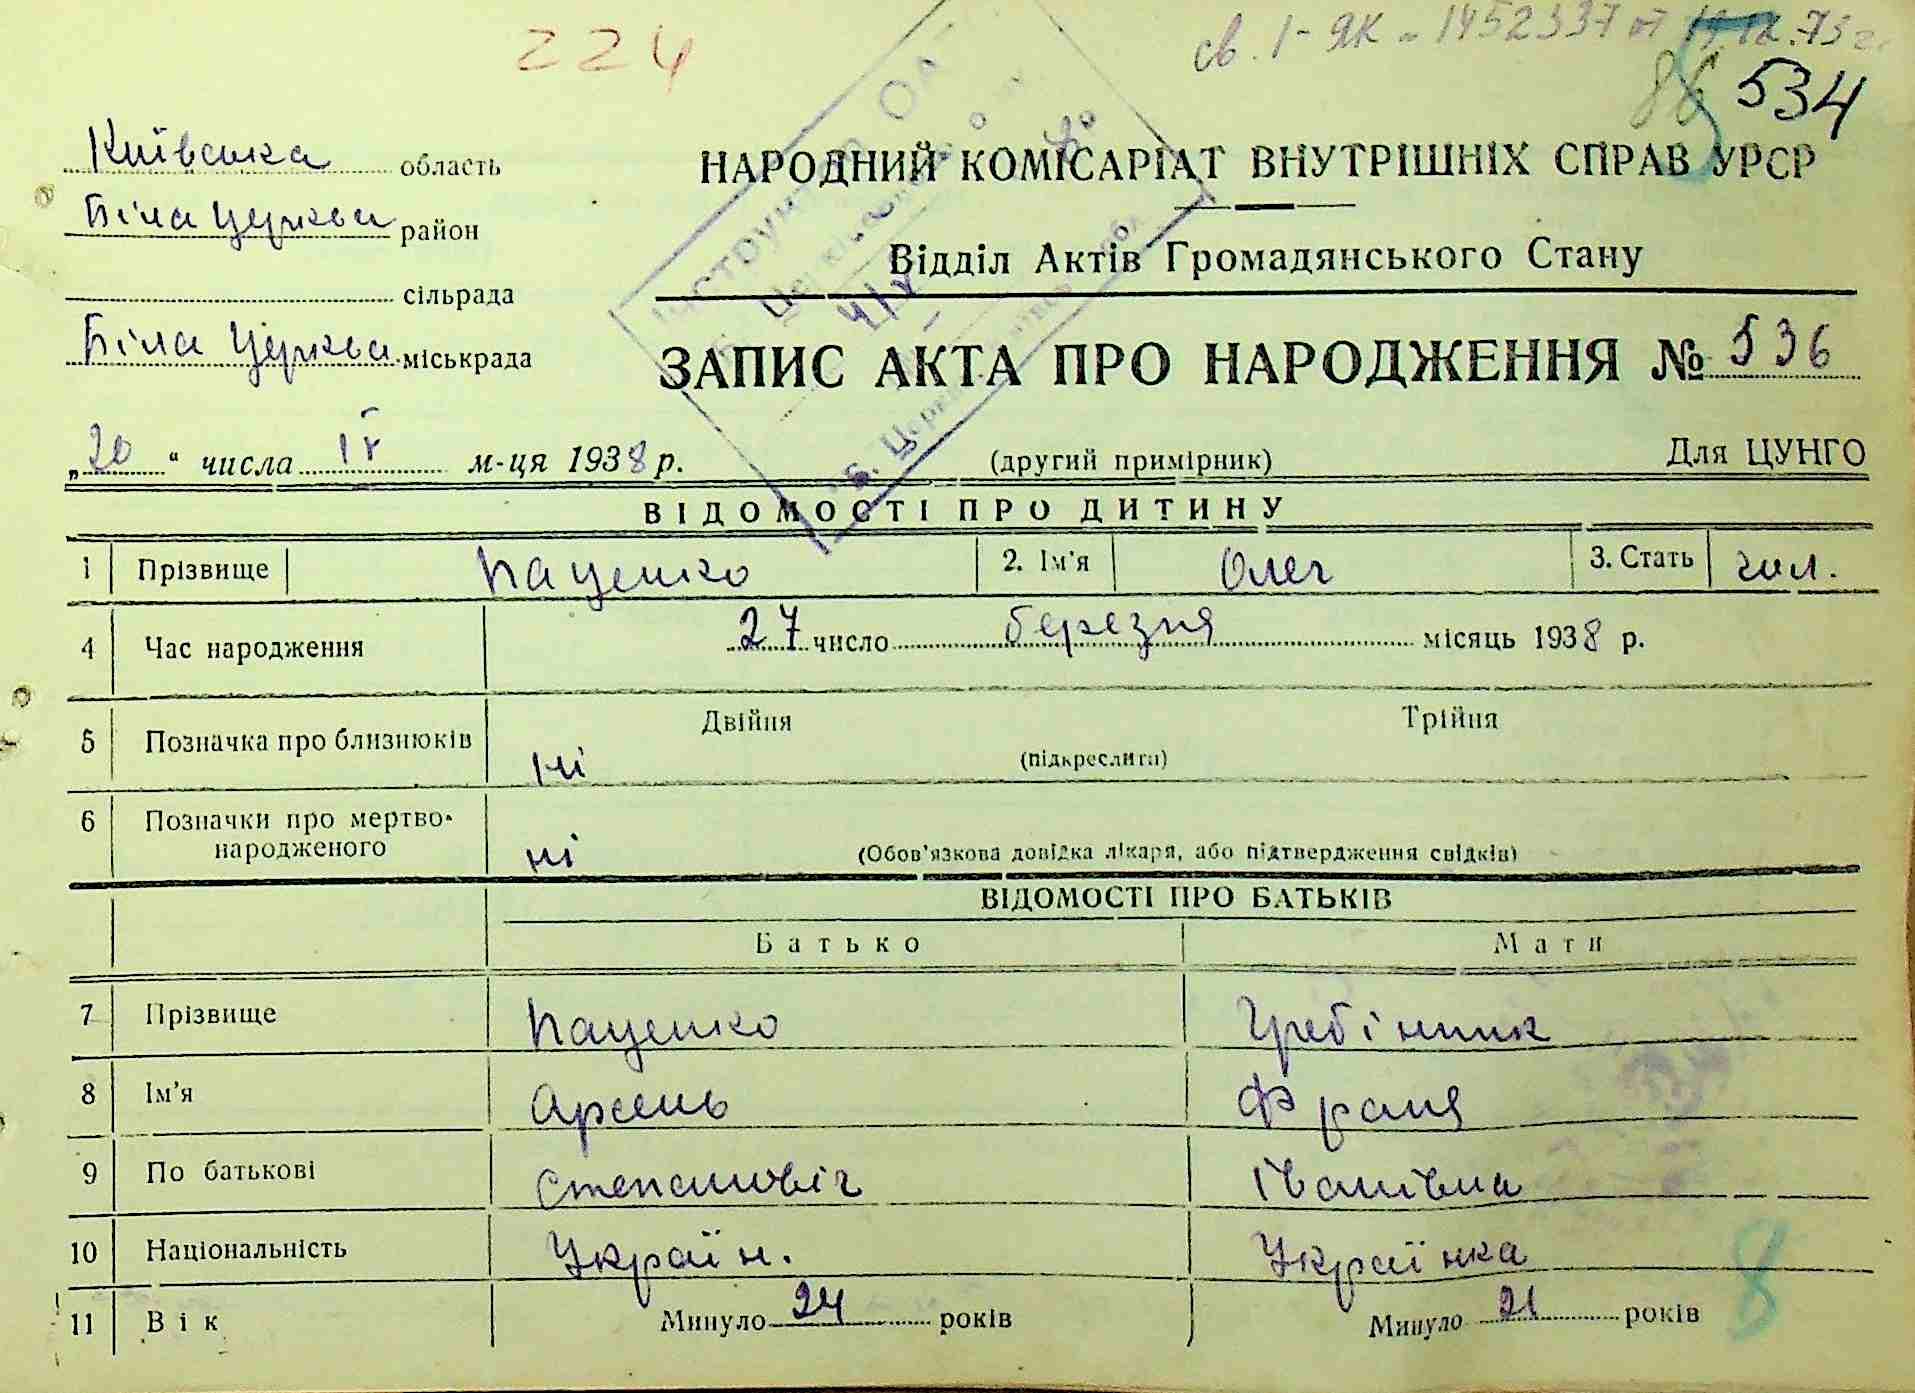 224
св. I-ЯК № 1452337 от 19.12.73 г.
86 534
Київська область
НАРОДНИЙ КОМІСАРІАТ ВНУТРІШНІХ СПРАВ УРСР
Біла Церква район
Відділ Актів Громадянського Стану
сільрада
Біла Церква міськрада
ЗАПИС АКТА ПРО НАРОДЖЕННЯ № 536
„20“ числа IV м-ця 1938 р. (другий примірник) Для ЦУНГО
ВІДОМОСТІ ПРО ДИТИНУ
1 Прізвище Паценко 2. Ім'я Олег 3. Стать чол.
4 Час народження 27 число березня місяць 1938 р.
5 Позначка про близнюків Двійня Трійня
ні (підкреслити)
6 Позначки про мертво-
народженого ні (Обов'язкова довідка лікаря, або підтвердження свідків)
ВІДОМОСТІ ПРО БАТЬКІВ
Батько Мати
7 Прізвище Паценко Гребінник
8 Ім'я Арсень Франя
9 По батькові Степановіч Іванівна
10 Національність Україн. Українка
11 Вік Минуло 24 років Минуло 21 років
8